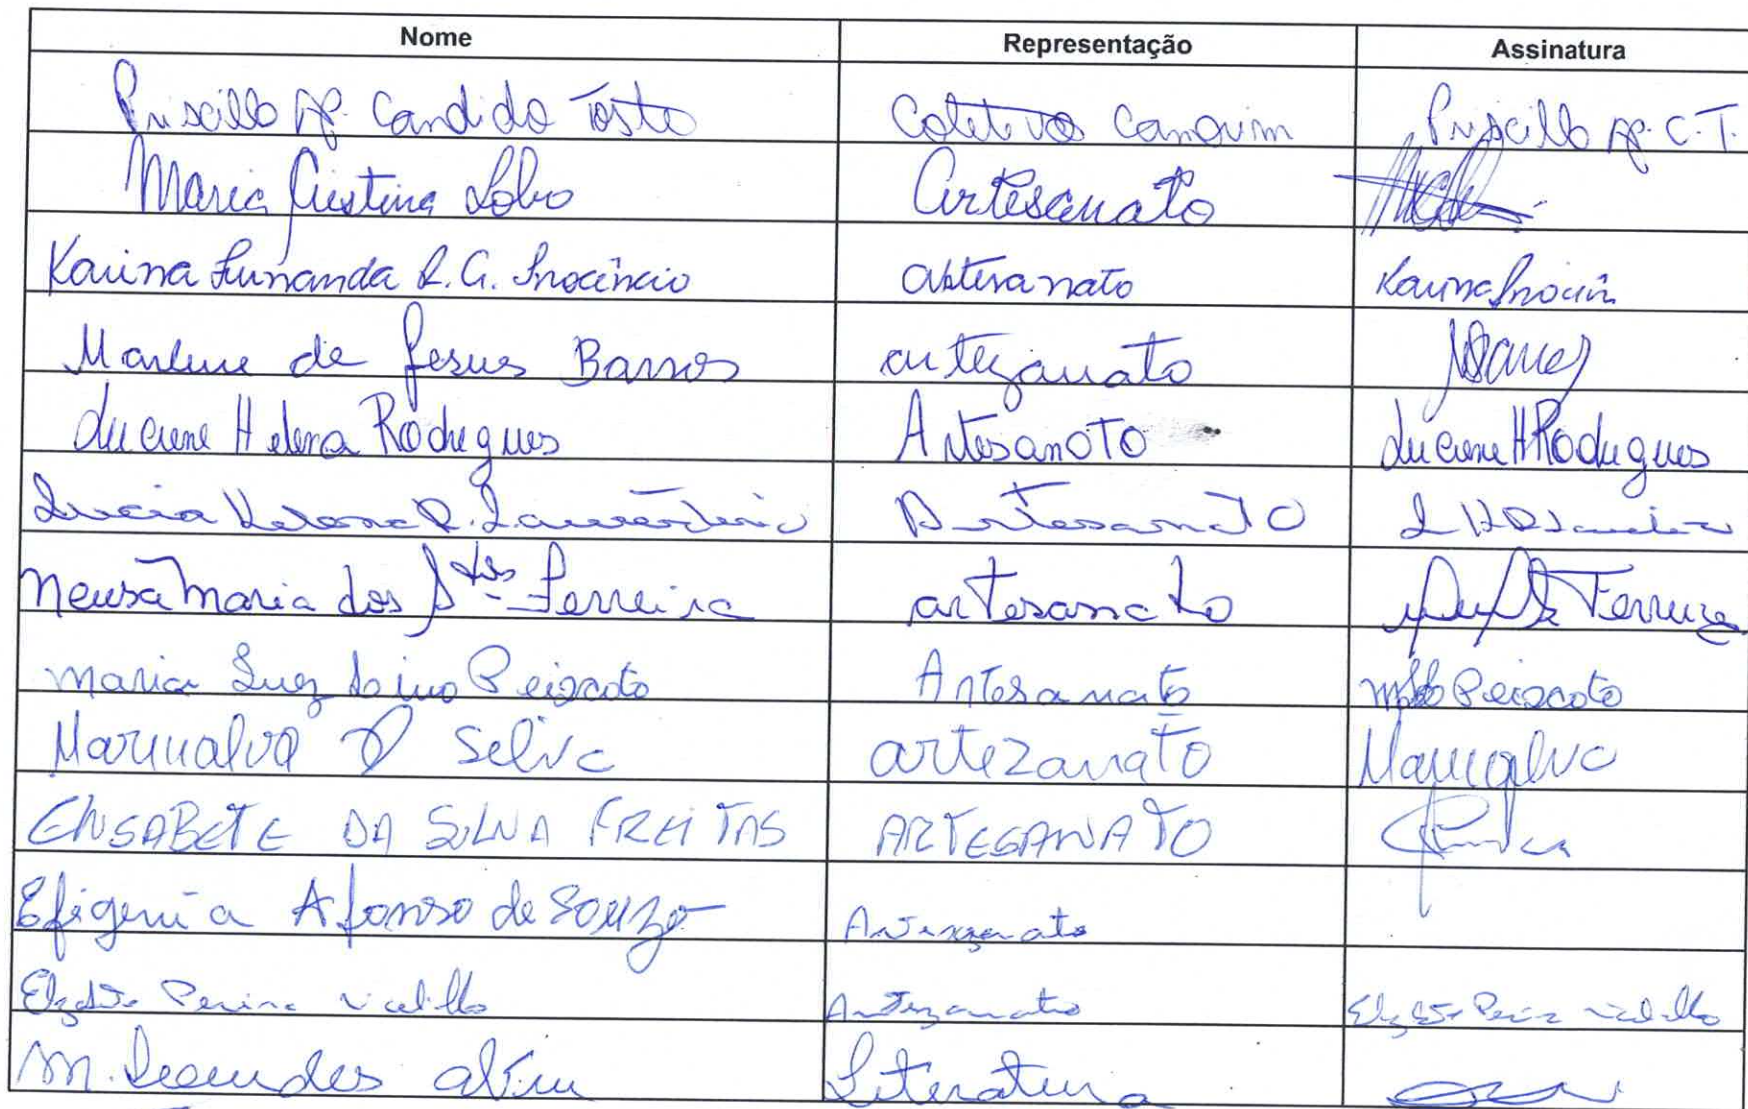 Nome Representação Assinatura
Priscilla Ap. Candido Tosta Coletivo Canquim Priscilla Ap. C. T.
Maria Cristina Lobo Artesanato
Karina Fernanda R. G. Inocêncio artesanato Karina Inocên
Marlene de Jesus Barros artezanato
Luciene Helena Rodrigues Artesanato Luciene H Rodrigues
Lucia Helena R. Artesanato
Neusa Maria dos Stos Ferreira artesanato Ferreira
Maria Luz Peixoto Artesanato Peixoto
Marinalva D Silva artezanato Marinalva
ELISABETE DA SILVA FREITAS ARTESANATO
Efigenia Afonso de Souza Artezanato
Perina Artezanato
M. Alvim Literatura